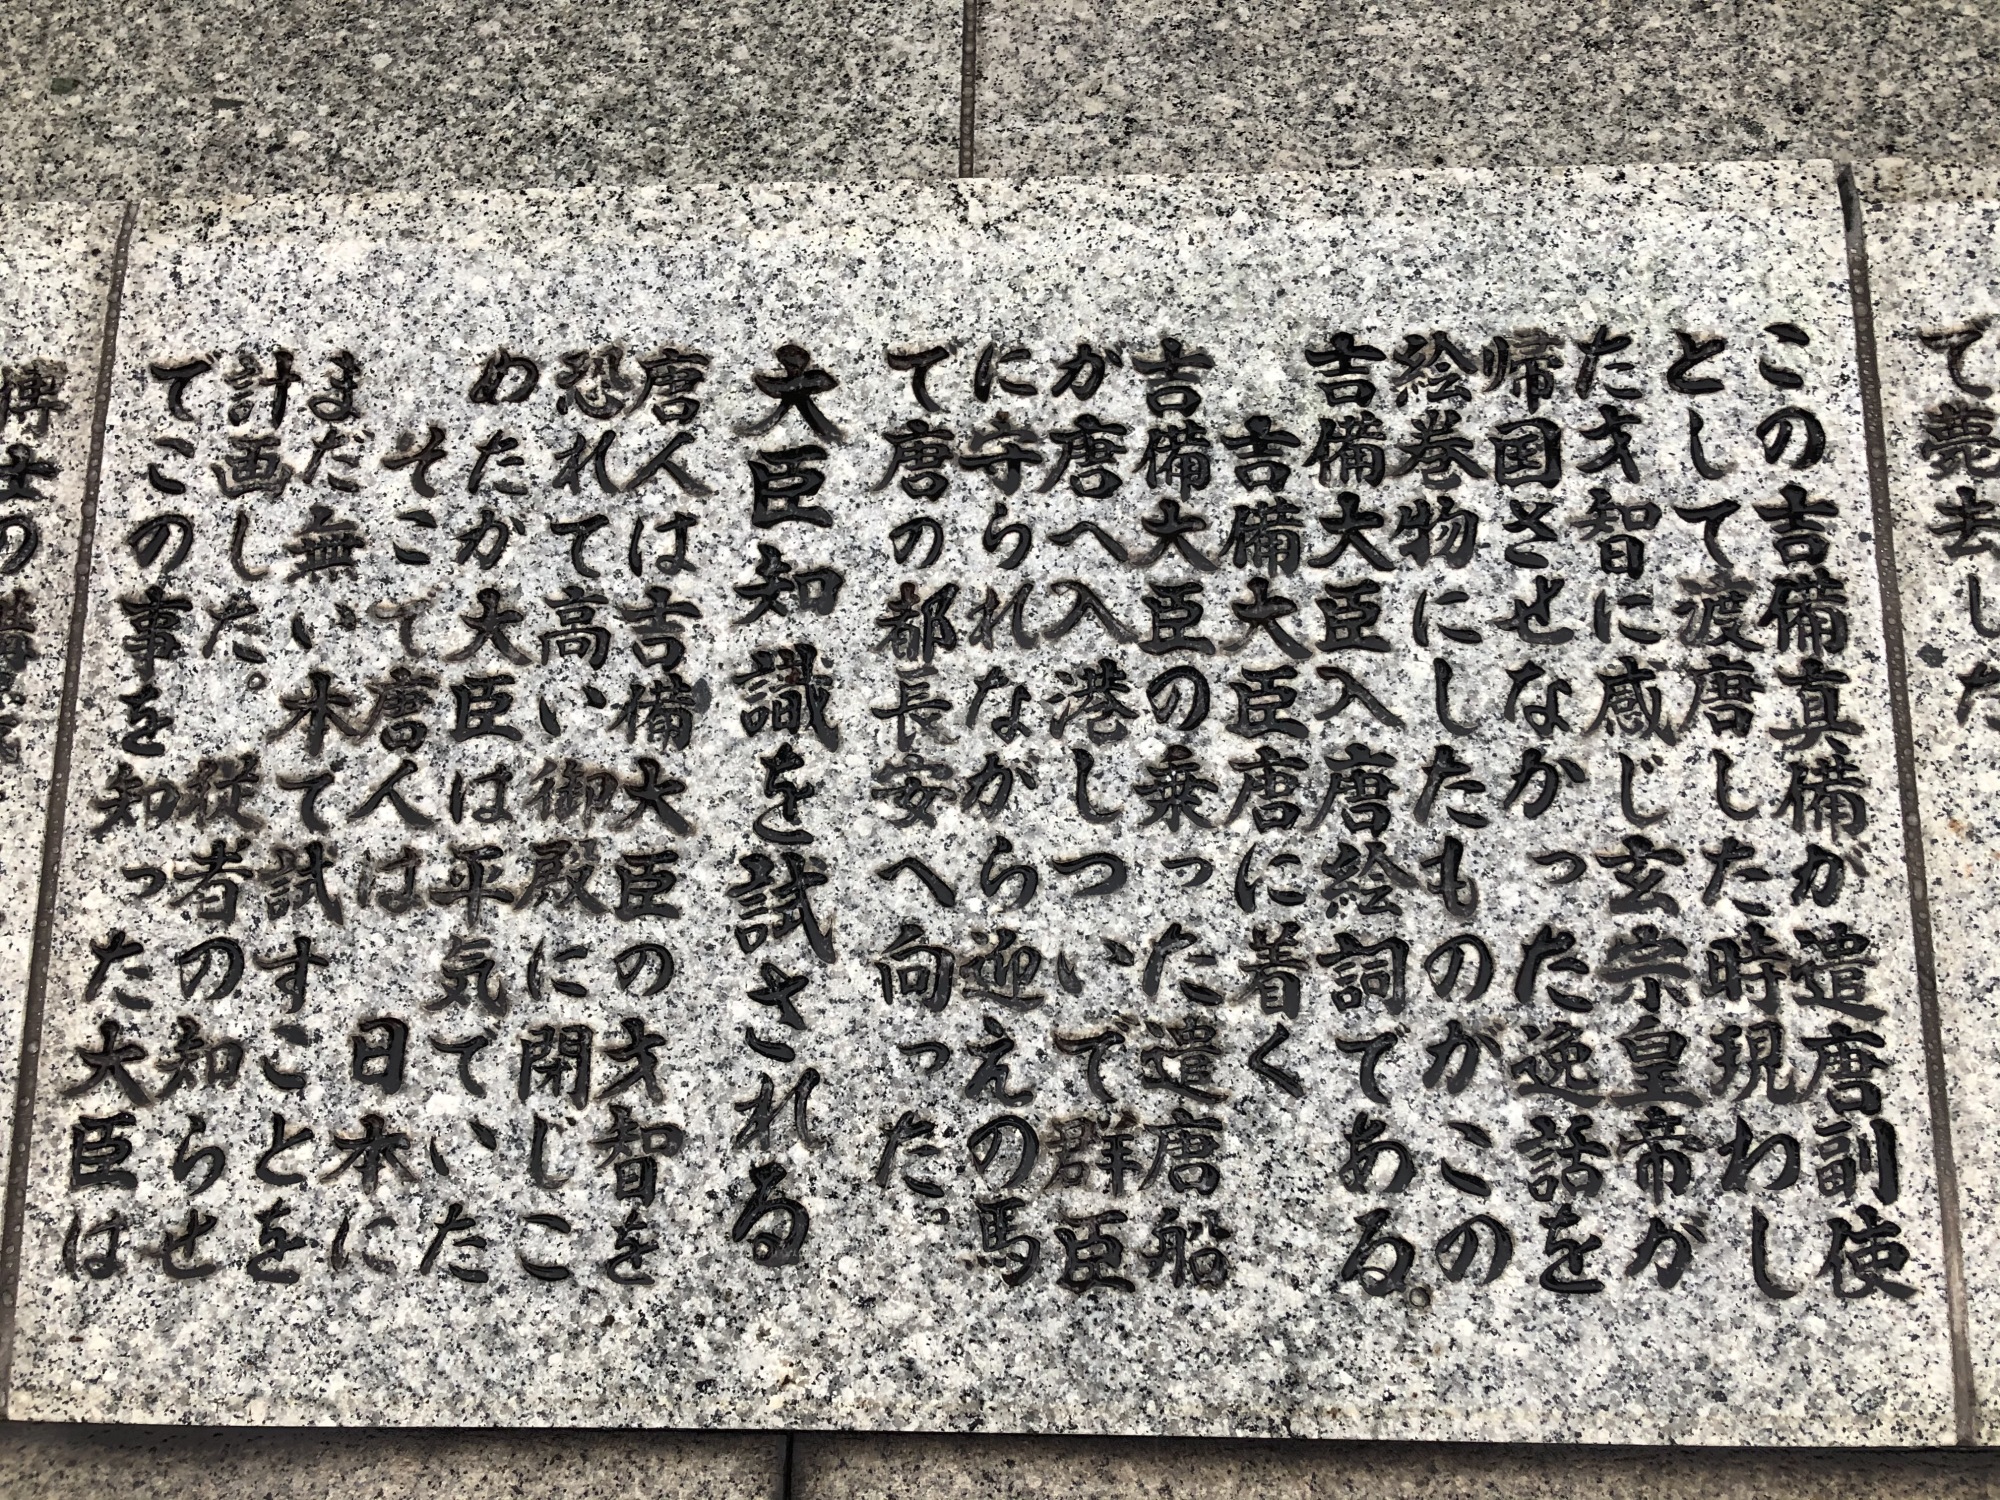 て薨去した
この吉備真備が遣唐副使
として渡唐した時現わし
た才智に感じ玄宗皇帝が
帰国させなかった逸話を
絵巻物にしたものがこの
吉備大臣入唐絵詞である。
吉備大臣唐に着く
吉備大臣の乗った遣唐船
が唐へ入港しついで群臣
に守られながら迎えの馬
て唐の都長安へ向った。
大臣知識を試される
唐人は吉備大臣の才智を
恐れて高い御殿に閉じこ
めたが大臣は平気でいた
そこで唐人は日本に
まだ無い本て試すことを
計画した。従者の知らせ
でこの事を知った大臣は
博士の